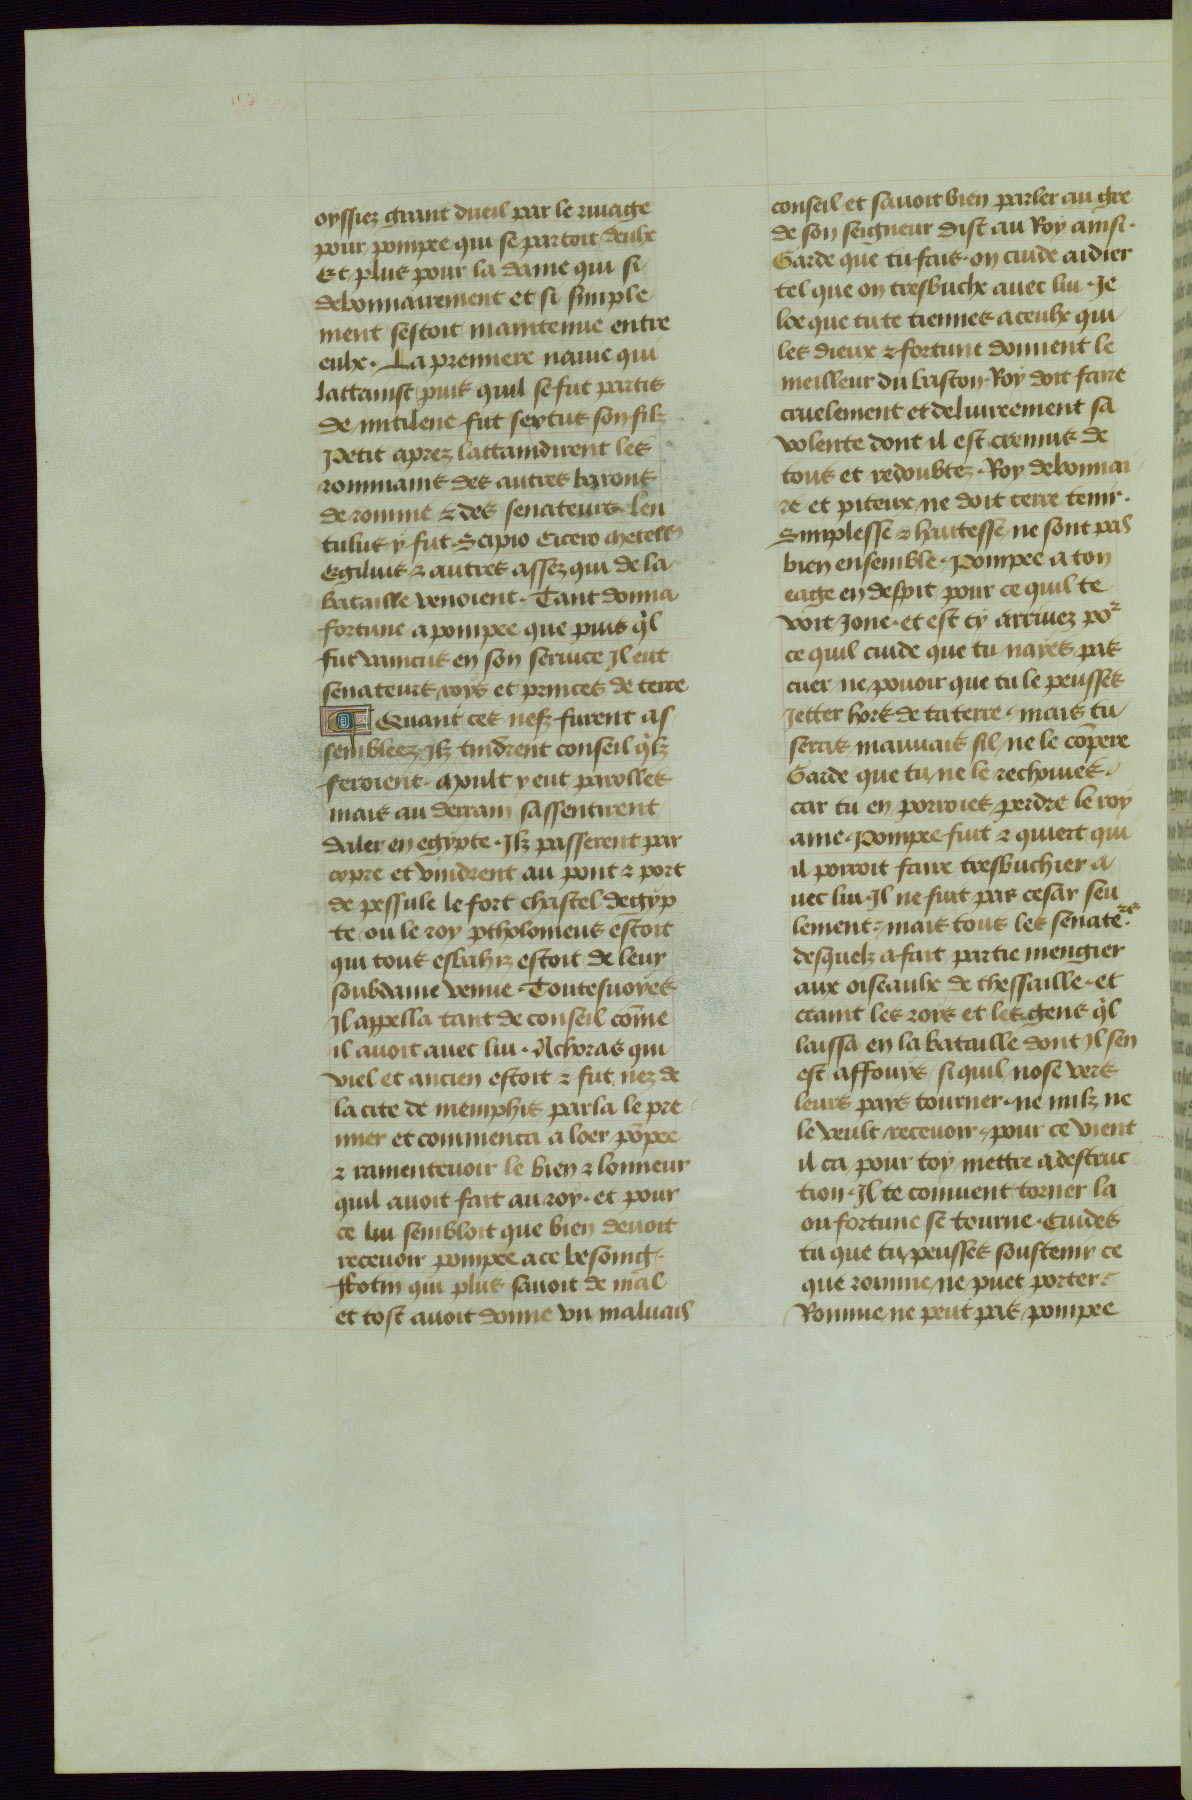 oyssiez grant dueil par le riuage
pour pompee qui se partoit deulx
Et plus pour la dame qui si
debonnairement et si simple
ment sestoit maintenue entre
eulx. La premiere naue qui
lattainst puis quil se fut partis
de mitilene fut sextus son filz
Petit aprez lattaindirent les
rommains des autres barons
de romme ⁊ des senateurs. len
tulus y fut. Scipio Cicero
Egilius ⁊ autres assez qui de la
bataille venoient. Tant donna
fortune a pompee que puis q̓l
fut vaincus en son seruice Il eut
senateurs roys et princes de terre
Quant ces nefz furent as
sembleez Ilz tindrent conseil q̓lz
feroient. Moult y eut parolles
mais au derrain sassentirent
daler en egypte. Ilz passerent par
cypre et vindrent au pont ⁊ port
de pessule le fort chastel degyp
te ou le roy ptholomeus estoit
qui tous esbahiz estoit de leur
soubdaine venue. Toutesuoyes
Il appella tant de conseil cōme
il auoit auec lui. Achoras qui
viel et ancien estoit ⁊ fut nez de
la cite de memphis parla le pre
mier et commenca a loer pōpee
⁊ ramenteuoir le bien ⁊ lonneur
quil auoit fait au roy. et pour
ce lui sembloit que bien deuoit
receuoir pompee a ce besoing.
Fotin qui plus sauoit de mal
et tost auoit donne vn maluais
conseil et sauoit bien parler au gre
de son seigneur dist au Roy ainsi.
Garde que tu fais. on cuide aidier
tel que on tresbuche auec lui. Je
loe que tu te tiennes a ceulx qui
les dieux ⁊ fortune donnent le
meilleur du baston. Roy doit faire
cruelement et deliureement sa
volente dont il est cremus de
tous et redoubtez. Roy debonnai
re et piteux ne doit terre tenir.
Simplesse ⁊ haultesse ne sont pas
bien ensemble. Pompee a ton
eage en despit pour ce quil te
voit Jone. et est cy arriuez poꝛ
ce quil cuide que tu nayes pas
cuer ne pouoir que tu le peusses
Jetter hors de ta terre. mais tu
seras mauuais sil ne le cōpere
Garde que tu ne le rechoiues.
car tu en porroies perdre le roy
ame. Pompee fuit ⁊ quiert qui
il porroit faire tresbuchier a
uec lui. Il ne fuit pas cesar seu
lement. mais tous les senateᷣs.
desquelz a fait partie mengier
aux oiseaulx de thessaille. et
craint les rois et les gens q̓l
laissa en la bataille dont Il sen
est affouys si quil nose vers
leurs pays tourner. ne nulz ne
le veult receuoir. pour ce vient
il ca pour toy mettre a destruc
tion. Il te conuient torner la
ou fortune se tourne. Cuides
tu que tu peusses soustenir ce
que romme ne puet porter.
Romme ne peut pas pompee